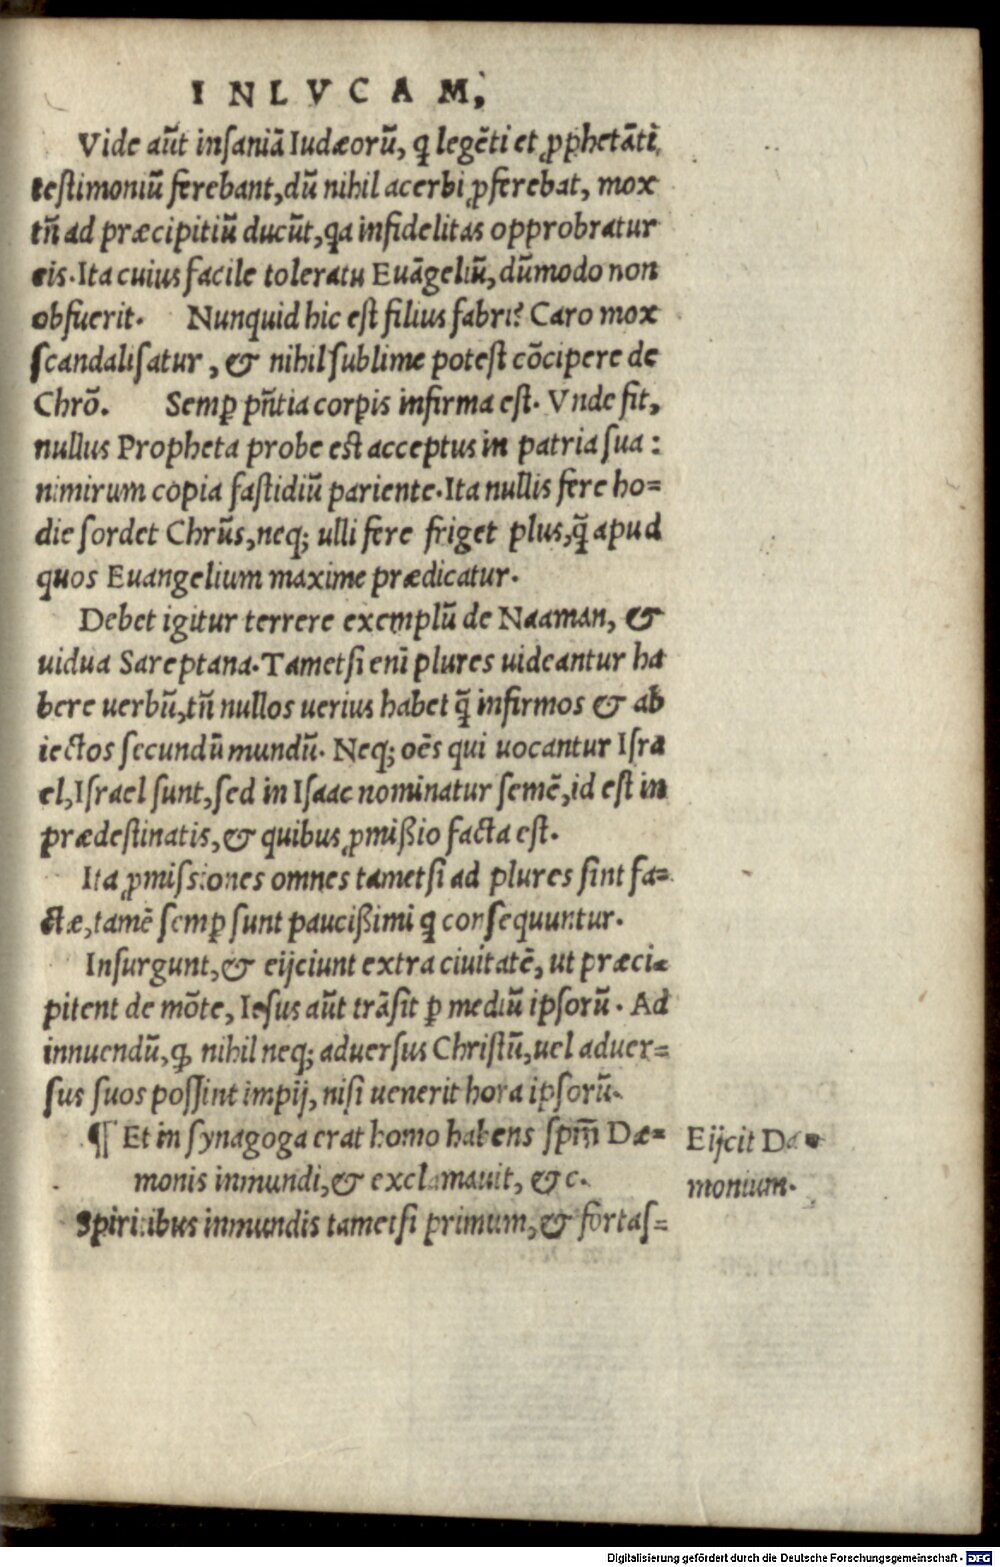 IN LVCAM,
Vide aūt insaniā Iudæorū, q legēti et ꝓphetāti,
testimoniū ferebant, dū nihil acerbi ꝓferebat, mox
tñ ad præcipitiū ducūt, qa infidelitas opprobratur
eis. Ita cuius facile toleratu Euāgeliū, dūmodo non
obfuerit. Nunquid hic est filius fabri? Caro mox
scandalisatur, & nihil sublime potest cōcipere de
Chrō. Semꝑ pñtia corꝑis infirma est. Vnde fit,
nullus Propheta probe est acceptus in patria sua:
nimirum copia fastidiū pariente. Ita nullis fere ho=
die sordet Chrūs, neq; ulli fere friget plus, q̄ apud
quos Euangelium maxime prædicatur.
Debet igitur terrere exemplū de Naaman, &
uidua Sareptana. Tametsi enī plures uideantur ha
bere uerbū, tñ nullos uerius habet q̄ infirmos & ab
iectos secundū mundū. Neq; oēs qui uocantur Isra
el, Israel sunt, sed in Isaac nominatur semē, id est in
prædestinatis, & quibus ꝓmißio facta est.
Ita ꝓmissiones omnes tametsi ad plures sint fa=
ctæ, tamē semꝑ sunt paucißimi q consequuntur.
Insurgunt, & eijciunt extra ciuitatē, ut præci=
pitent de mōte, Iesus aūt trāsit ꝑ mediū ipsorū. Ad
innuendū, ꝙ nihil neq; aduersus Christū, uel aduer=
sus suos possint impij, nisi uenerit hora ipsorū.
¶ Et in synagoga erat homo habens spm̄ Dæ=
monis inmundi, & exclamauit, &c.
Eijcit Dæ=
monium.
Spiritibus inmundis tametsi primum, & fortas=
Digitalisierung gefördert durch die Deutsche Forschungsgemeinschaft - DFG